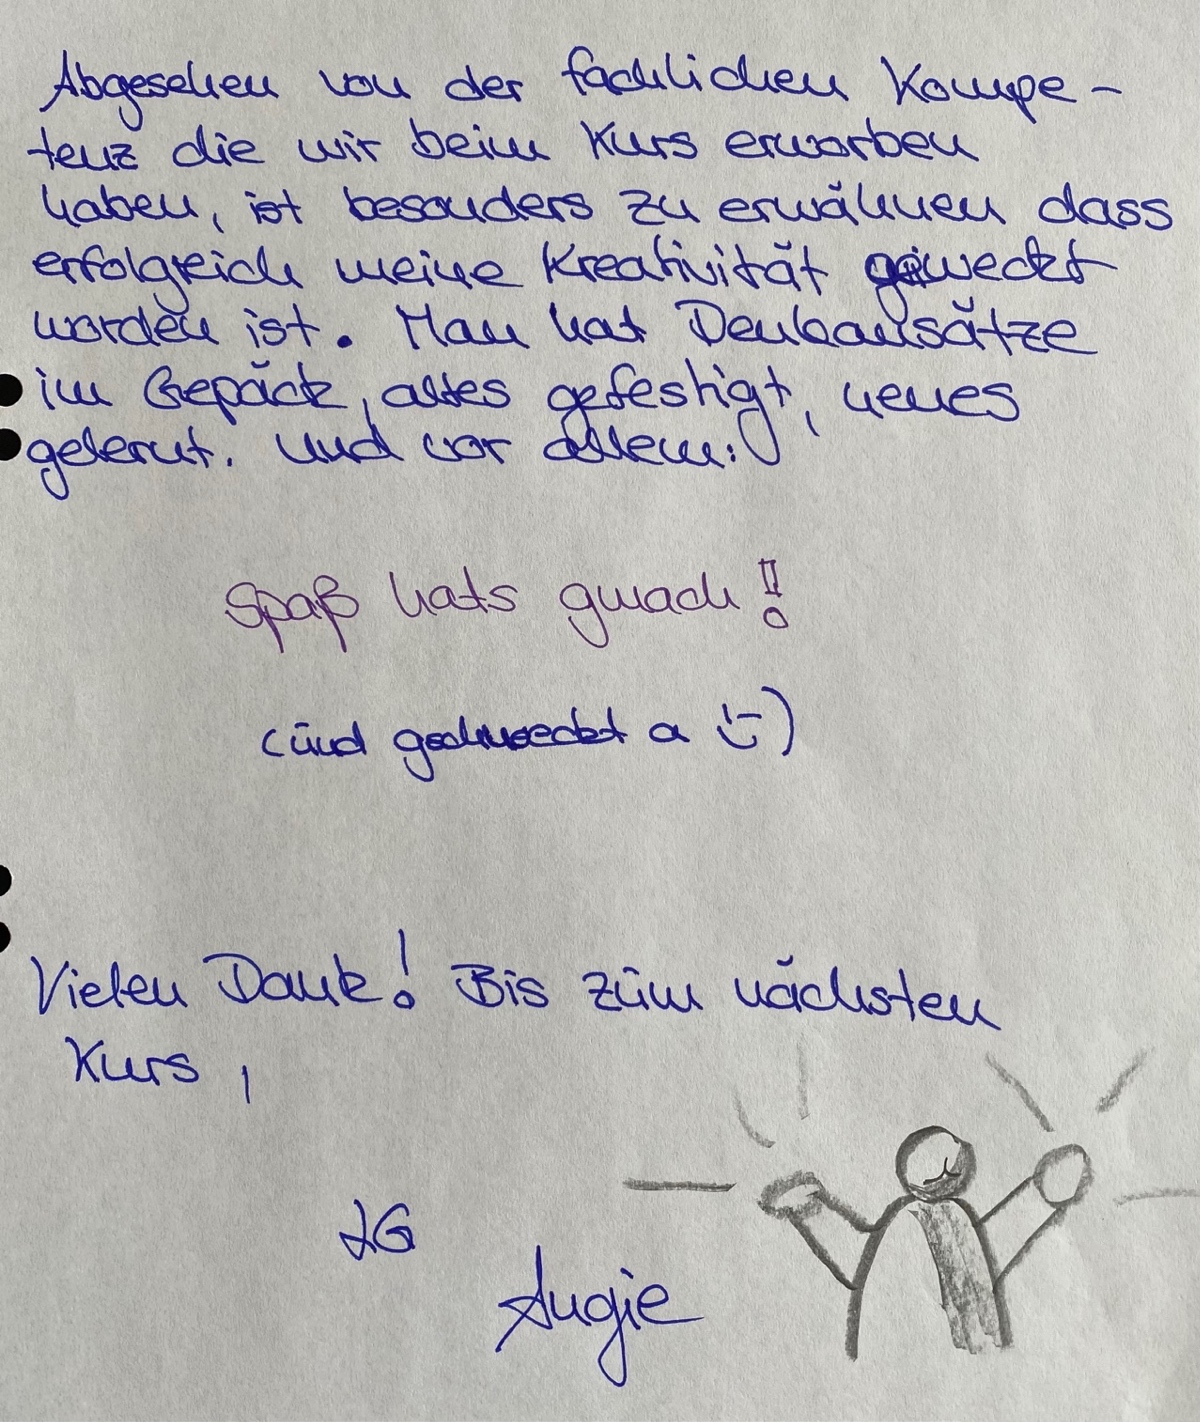 Abgesehen von der fachlichen Kompe-
tenz die wir beim Kurs erworben
haben, ist besonders zu erwähnen dass
erfolgreich meine Kreativität geweckt
worden ist. Man hat Denkansätze
im Gepäck, altes gefestigt, neues
gelernt. Und vor allem:
Spaß hats gmach!!
(und gschmeckt a :-))
Vielen Dank! Bis zum nächsten
Kurs,
LG
Augie